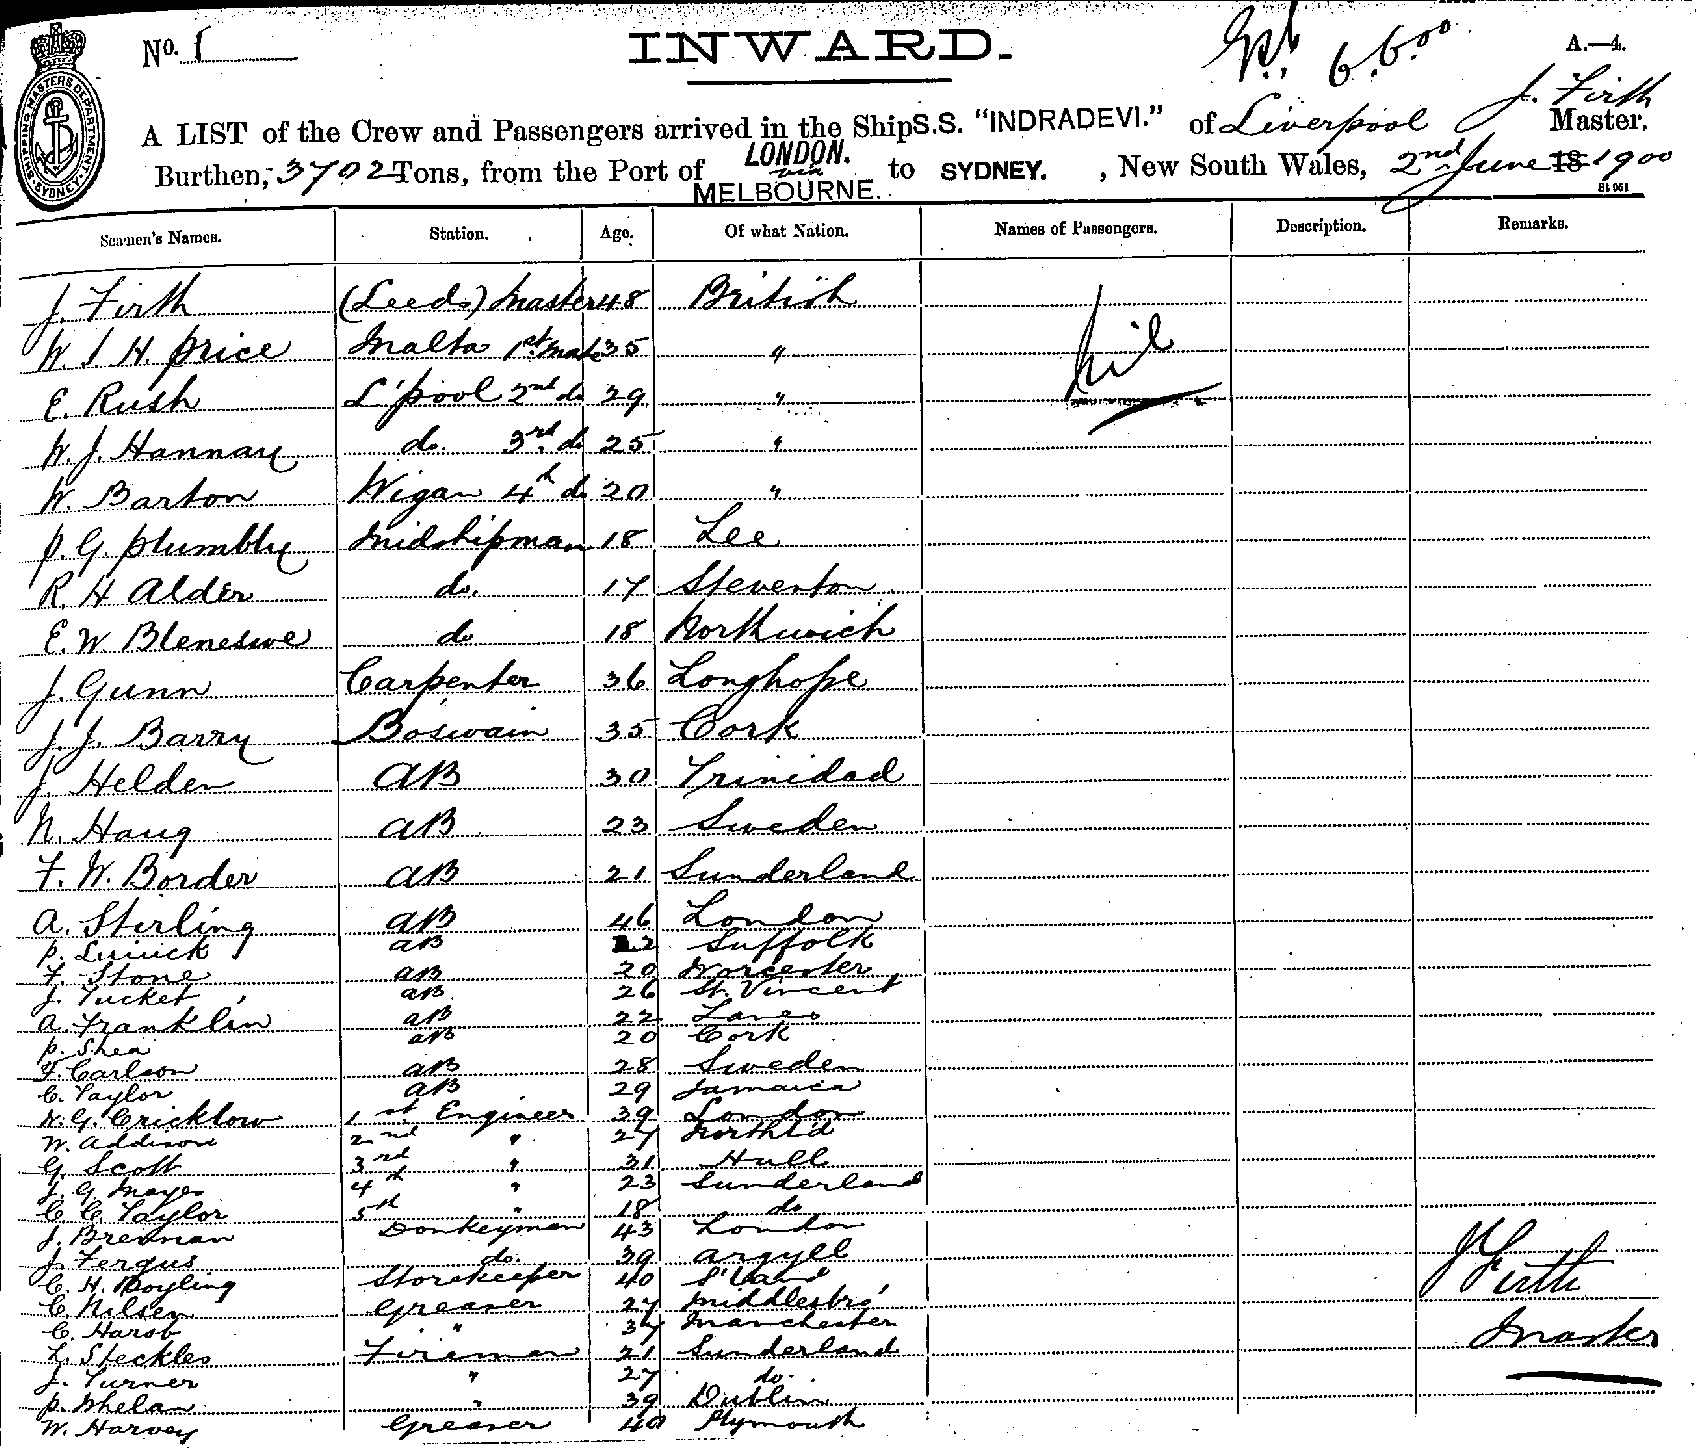 No. 1 INWARD. 6.6.00 A.—4.
SHIPPING MASTERS DEPARTMENT SYDNEY
J. Firth
A LIST of the Crew and Passengers arrived in the Ship S.S. "INDRADEVI." of Liverpool Master,
Burthen, 3702 Tons, from the Port of LONDON. via MELBOURNE. to SYDNEY. , New South Wales, 2nd June 18 1900
Seamen's Names. Station. Age. Of what Nation. Names of Passengers. Description. Remarks.
J. Firth (Leeds) Master 48 British
W. J. H. Price Malta 1st Mate 35 " Nil
E. Rush L'pool 2nd do 29 "
W. J. Hannay do. 3rd do 25 "
W. Barton Wigan 4th do 20 "
P. G. Plumbly Midshipman 18 Lee
R. H Alder do. 17 Steventon
E. W Bleneswe do 18 Northwich
J. Gunn Carpenter 36 Longhope
J. J. Barry Boswain 35 Cork
J. Helden AB 30 Trinidad
N. Haug AB 23 Sweden
F. W. Border AB 21 Sunderland
A. Stirling AB 46 London
P. AB Suffolk
F. Stone AB 20 Worcester
J. Tucket AB 26 St. Vincent
A. Franklin AB 22
P. Shea AB 20 Cork
F. Carlson AB 28 Sweden
C. Taylor AB 29 Jamaica
W. G. Cricklow 1st Engineer 39 London
W. Addison 2nd " 27 Northld
G. Scott 3rd " 31 Hull
J. G. Mayes 4th " 23 Sunderland
C. C. Taylor 5th " 18 do
J. Brennan Donkeyman 43 London
J. Fergus do. 39 Argyll
C. H. Boyling Storekeeper 40 S'land
J Firth
C. Nilsen Greaser 27 Middlesbro'
C. Harsb " 37 Manchester
Master
L. Steckles Fireman 21 Sunderland
J. Turner " 27 do.
P. Whelan " 39 Dublin
W. Harvey Greaser 40 Plymouth